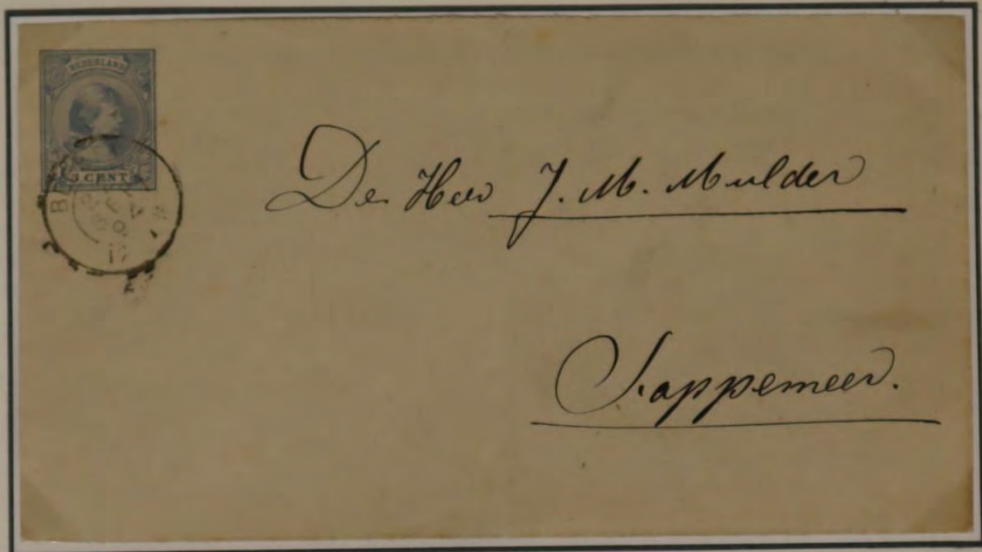 NEDERLAND
5 CENT
De Heer J. M. Mulder
Sappemeer.